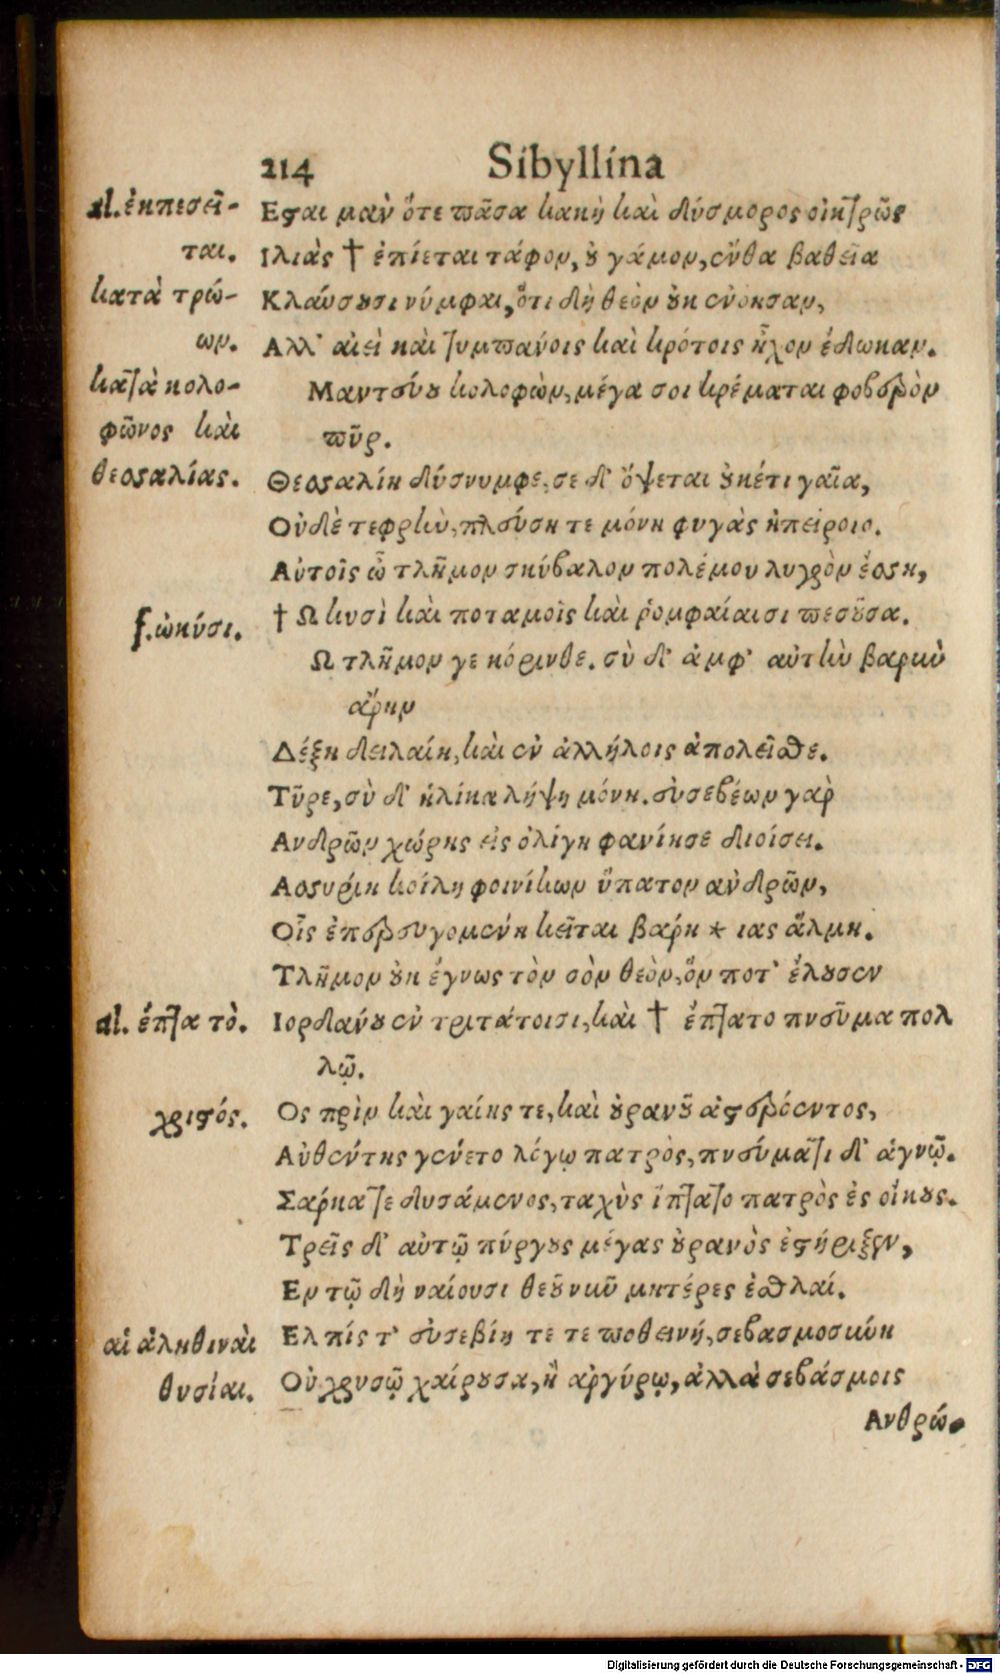 214 Sibyllina
al. ἐκπεσεῖ-
ται.
κατὰ τρώ-
ων.
κατὰ κολο-
φῶνος καὶ
θεσσαλίας.
Εσται μὰν ὅτε πᾶσα κακὴ καὶ δύσμορος οἰκτρῶς
Ιλιὰς † ἐπίεται τάφον, οὐ γάμον, ἔνθα βαθεῖα
Κλαύσουσι νύμφαι, ὅτι δὴ θεὸν οὐκ ἐνόησαν,
Αλλ' αἰεὶ καὶ τυμπάνοις καὶ κρότοις ἦχον ἔδωκαν.
Μαντεύου κολοφὼν, μέγα σοι κρέμαται φοβερὸν
πῦρ.
Θεσσαλίη δύσνυμφε, σε δ' ὄψεται οὐκέτι γαῖα,
Οὐδὲ τεφρὴν, πλεύση τε μόνη φυγὰς ἠπείροιο.
Αὐτοῖς ὦ τλῆμον σκύβαλον πολέμου λυγρὸν ἔσση,
f. ὠκύσι.
† Ω κυσὶ καὶ ποταμοῖς καὶ ῥομφαίαισι πεσοῦσα.
Ω τλῆμον γε κόρινθε. σὺ δ' ἀμφ' αὐτὴν βαρὺν
ἄρην
Δέξη δειλαίη, καὶ ἐν ἀλλήλοις ἀπολεῖσθε.
Τῦρε, σὺ δ' ἡλίκα λήψη μόνη. εὐσεβέων γὰρ
Ανδρῶν χώρης εἰς ὀλίγη φανίησε διοίσει.
Ασσυρίη κοίλη φοινίκων ὕπατον ἀνδρῶν,
Οἷς ἐπερευγομένη κεῖται βαρίη * ιας ἅλμη.
Τλῆμον οὐκ ἔγνως τὸν σὸν θεὸν, ὅν ποτ' ἔλουσεν
al. ἔπτα τὸ.
Ιορδάνου ἐν τριτάτοισι, καὶ † ἔπτατο πνεῦμα πολ
λῷ.
χριστός.
Ος πρὶν καὶ γαίης τε, καὶ οὐρανοῦ ἀστερόεντος,
Αὐθέντης γένετο λόγῳ πατρὸς, πνεύματι δ' ἁγνῷ.
Σάρκα τε δυσάμενος, ταχὺς ἵπτατο πατρὸς ἐς οἴκους.
Τρεῖς δ' αὐτῷ πύργους μέγας οὐρανὸς ἐστήριξεν,
Εν τῷ δὴ ναίουσι θεοῦ νῦν μητέρες ἐσθλαί.
αἱ ἀληθιναὶ
θυσίαι.
Ελπίς τ' εὐσεβίη τε τε ποθεινή, σεβασμοσύνη
Οὐ χρυσῷ χαίρουσα, ἢ ἀργύρῳ, ἀλλὰ σεβάσμοις
Ανθρώ-
Digitalisierung gefördert durch die Deutsche Forschungsgemeinschaft - DFG